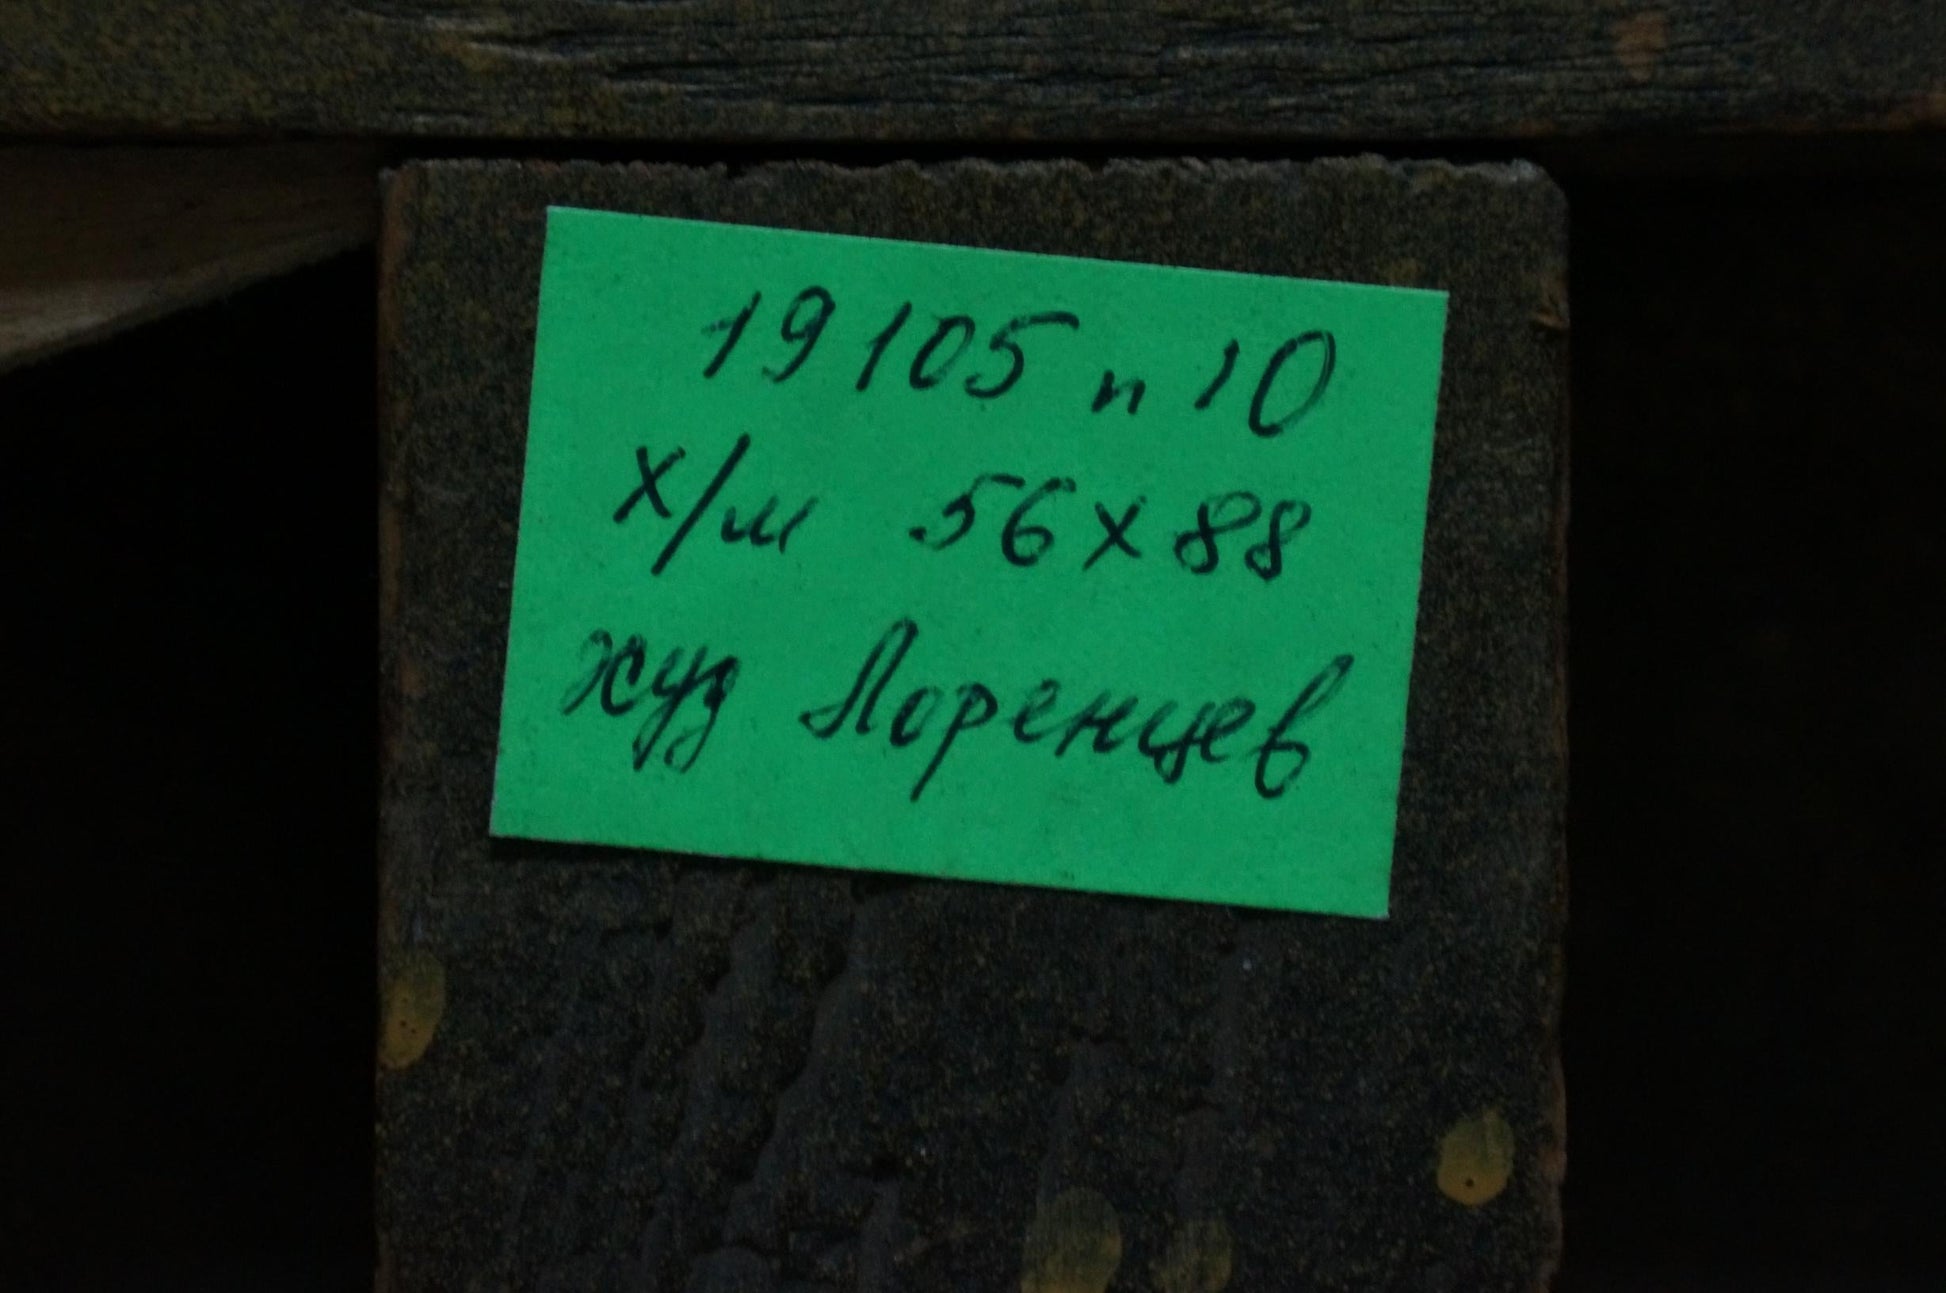 19105 п 10
х/м 56х88
худ Лоренцев